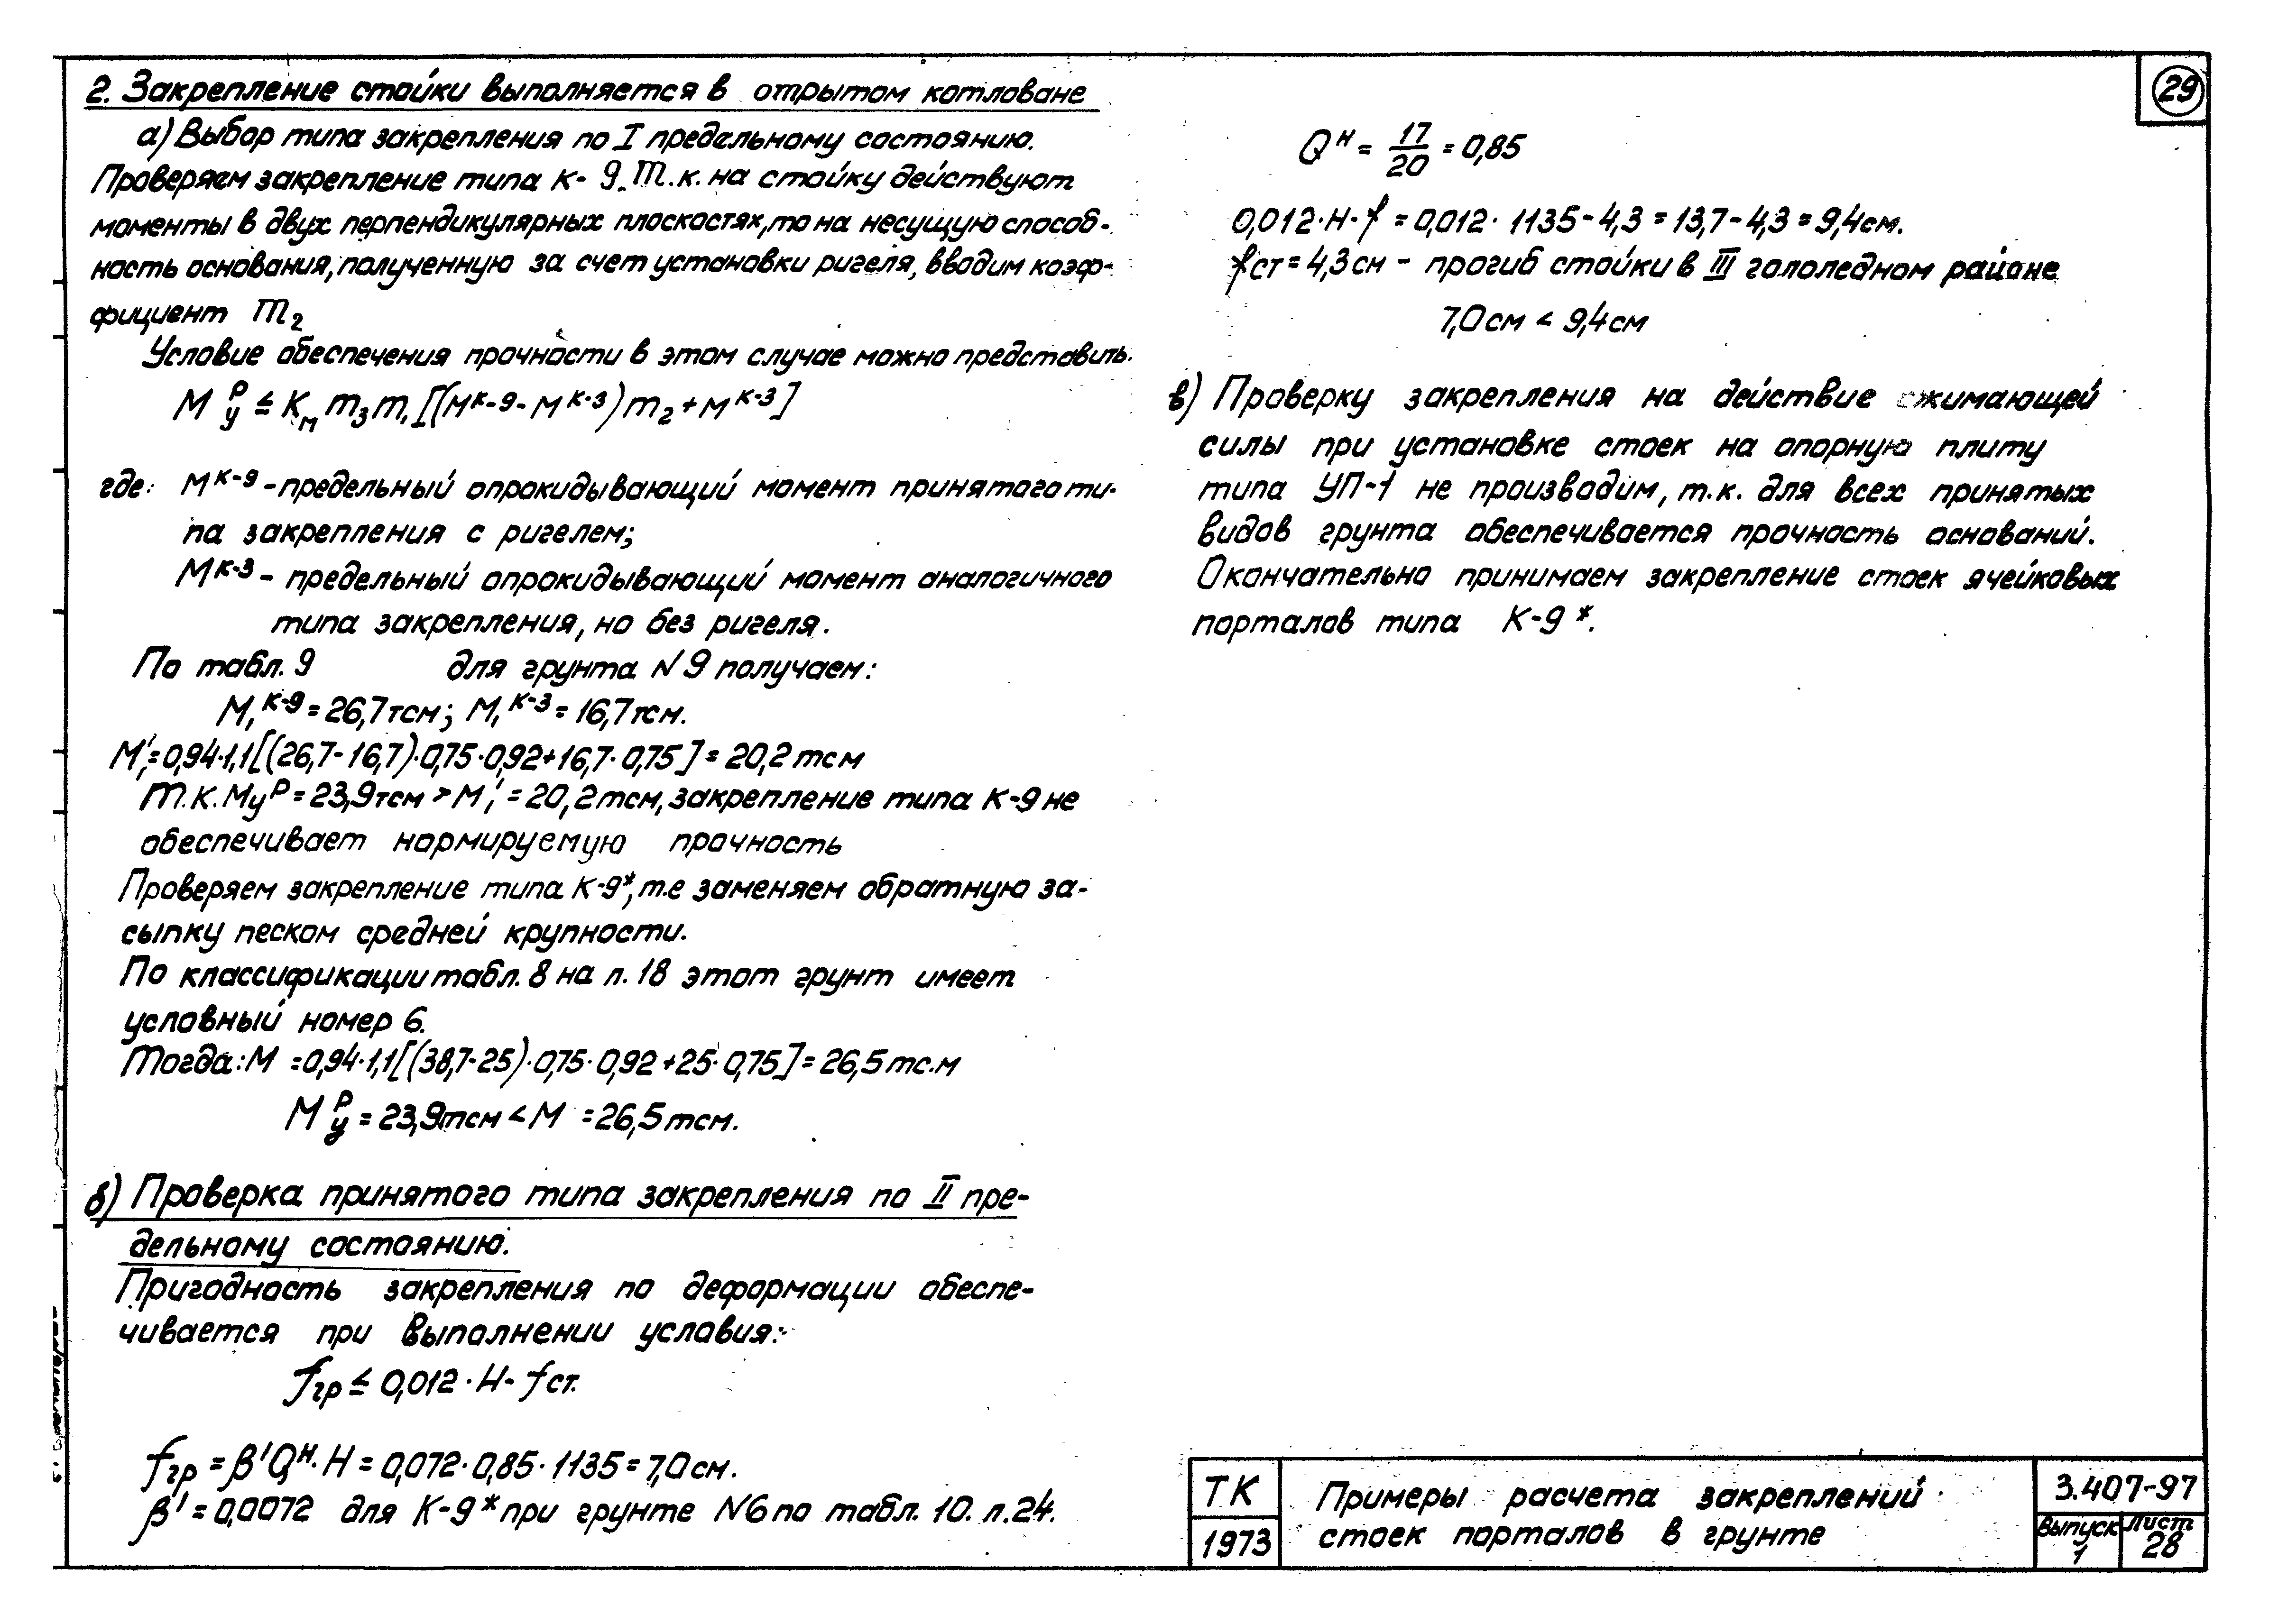 2. Закрепление стойки выполняется в отрытом котловане
а) Выбор типа закрепления по I предельному состоянию.
Проверяем закрепление типа К-9. Т.к. на стойку действуют
моменты в двух перпендикулярных плоскостях, то на несущую способ-
ность основания, полученную за счет установки ригеля, вводим коэф-
фициент m₂
Условие обеспечения прочности в этом случае можно представить.
M^р_у ≤ K_м m₃ m₁ [(M^к-9 - M^к-3) m₂ + M^к-3]
где: M^к-9 - предельный опрокидывающий момент принятого ти-
па закрепления с ригелем;
M^к-3 - предельный опрокидывающий момент аналогичного
типа закрепления, но без ригеля.
По табл. 9 для грунта N 9 получаем:
M₁^к-9 = 26,7 тсм; M₁^к-3 = 16,7 тсм.
M₁' = 0,94·1,1[(26,7-16,7)·0,75·0,92+16,7·0,75] = 20,2 тсм
Т.К. Mу^р = 23,9 тсм > M₁' = 20,2 тсм, закрепление типа К-9 не
обеспечивает нормируемую прочность
Проверяем закрепление типа К-9*, т.е заменяем обратную за-
сыпку песком средней крупности.
По классификации табл. 8 на л. 18 этот грунт имеет
условный номер 6.
Тогда: M = 0,94·1,1[(38,7-25)·0,75·0,92+25·0,75] = 26,5 тс.м
M^р_у = 23,9 тсм < M = 26,5 тсм.
б) Проверка принятого типа закрепления по II пре-
дельному состоянию.
Пригодность закрепления по деформации обеспе-
чивается при выполнении условия:
f_гр ≤ 0,012 · H - f ст.
f_гр = β' Q^н · H = 0,072 · 0,85 · 1135 = 7,0 см.
β' = 0,0072 для К-9* при грунте N6 по табл. 10. л.24.
29
Q^н = 17/20 = 0,85
0,012·H-f = 0,012 · 1135 - 4,3 = 13,7 - 4,3 = 9,4 см.
fст = 4,3 см - прогиб стойки в III гололедном районе
7,0 см < 9,4 см
в) Проверку закрепления на действие сжимающей
силы при установке стоек на опорную плиту
типа УП-1 не производим, т.к. для всех принятых
видов грунта обеспечивается прочность оснований.
Окончательно принимаем закрепление стоек ячейковых
порталов типа К-9*.
ТК
1973
Примеры расчета закреплений
стоек порталов в грунте
3.407-97
Выпуск
1
Лист
28